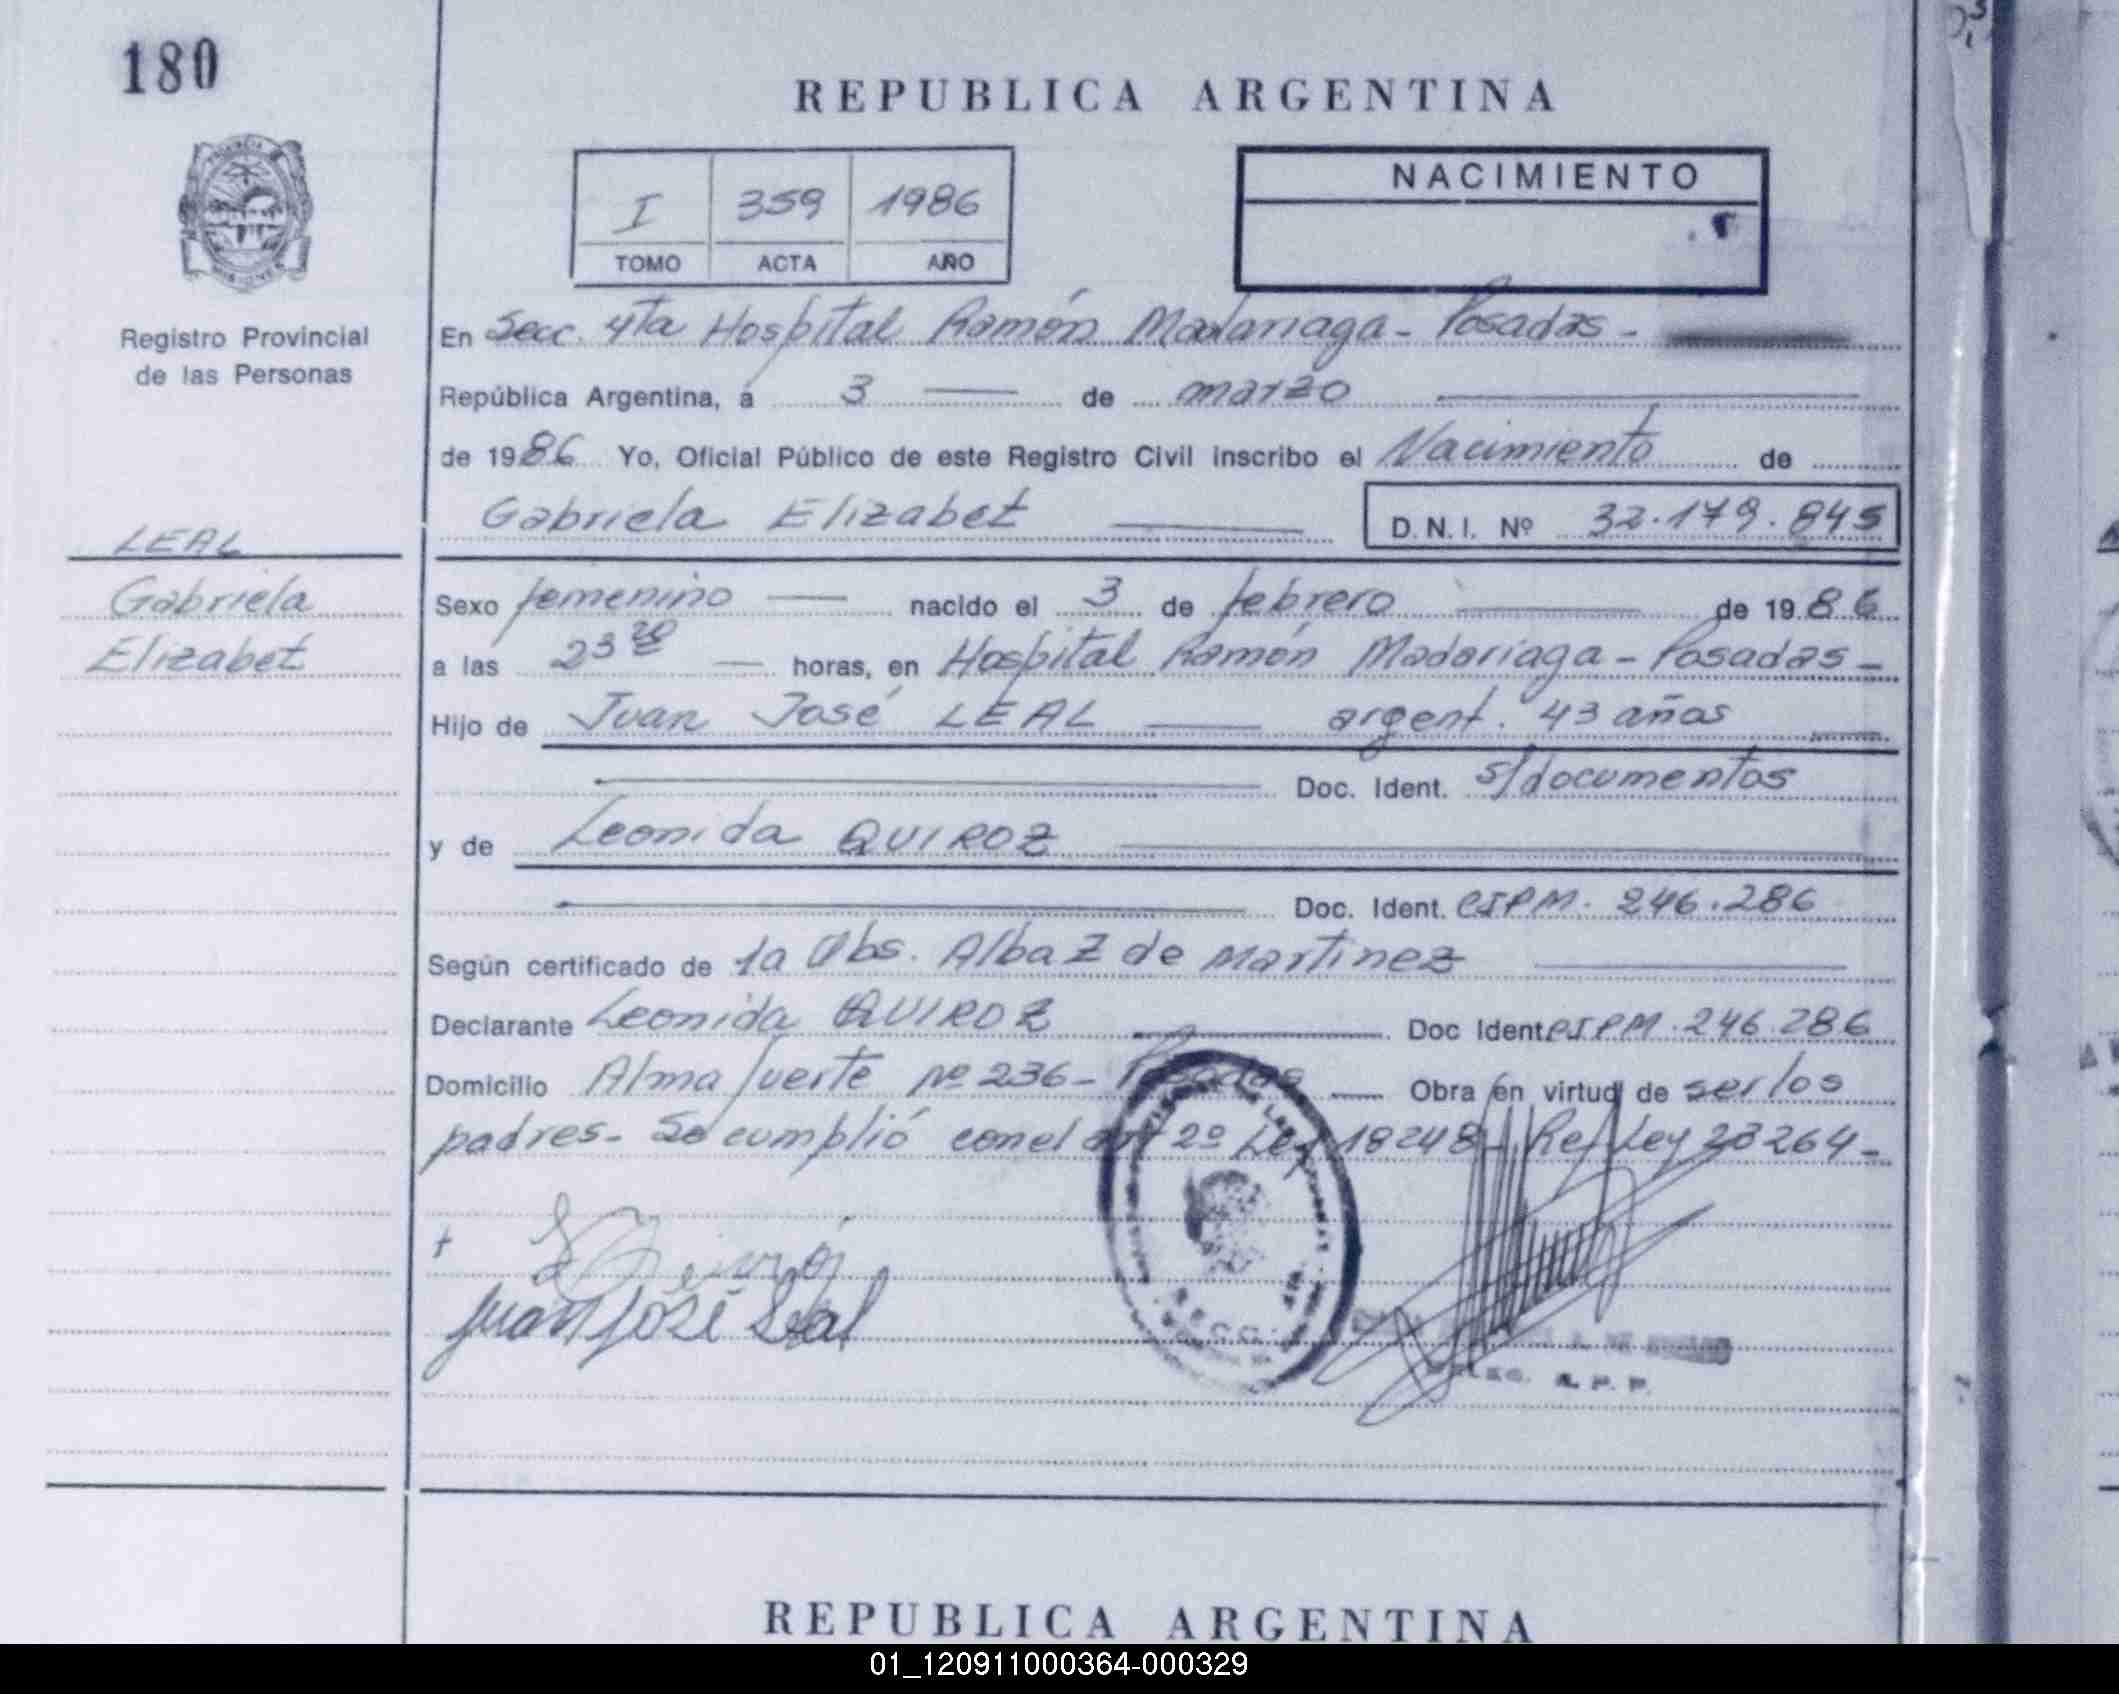 180
REPUBLICA ARGENTINA
I 359 1986
TOMO ACTA AÑO
NACIMIENTO
Registro Provincial
de las Personas
En Secc. 4ta Hospital Ramón Madariaga - Posadas -
República Argentina, a 3 de marzo
de 1986 Yo, Oficial Público de este Registro Civil inscribo el Nacimiento de
Gabriela Elizabet D.N.I. Nº 32.179.845
LEAL
Gabriela
Elizabet
Sexo femenino nacido el 3 de febrero de 1986
a las 23 20 horas, en Hospital Ramón Madariaga - Posadas -
Hijo de Juan José LEAL argent. 43 años
Doc. Ident. s/documentos
y de Leonida QUIROZ
Doc. Ident. CIPM. 246.286
Según certificado de la Obs. Alba Z de Martinez
Declarante Leonida QUIROZ Doc Ident CIPM. 246.286
Domicilio Almafuerte Nº 236 - Posadas Obra en virtud de ser los
padres - Se cumplió con el art 2º Ley 18248 - Ref Ley 23264 -
Juan José Leal
R. P. P.
REPUBLICA ARGENTINA
01_120911000364-000329